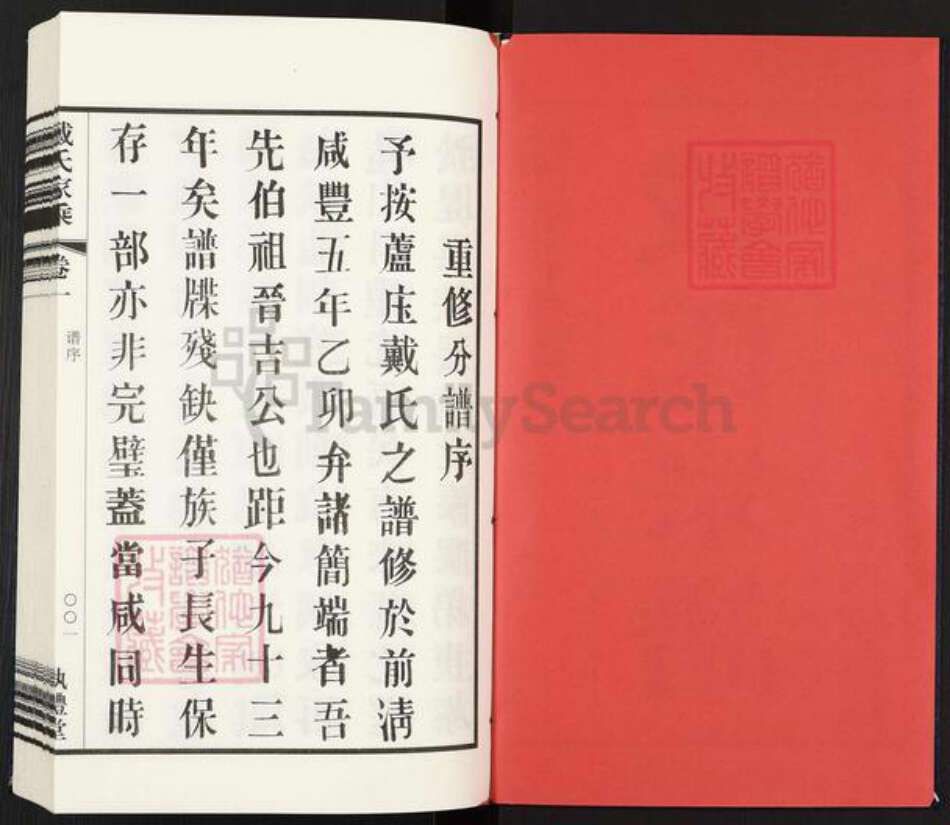 重修分譜序
予按蘆庄戴氏之譜修於前淸
咸豐五年乙卯弁諸簡端者吾
先伯祖晉吉公也距今九十三
年矣譜牒殘缺僅族子長生保
存一部亦非完璧蓋當咸同時
戴氏家乘
卷一
谱序
〇〇一
執豐堂
FamilySearch